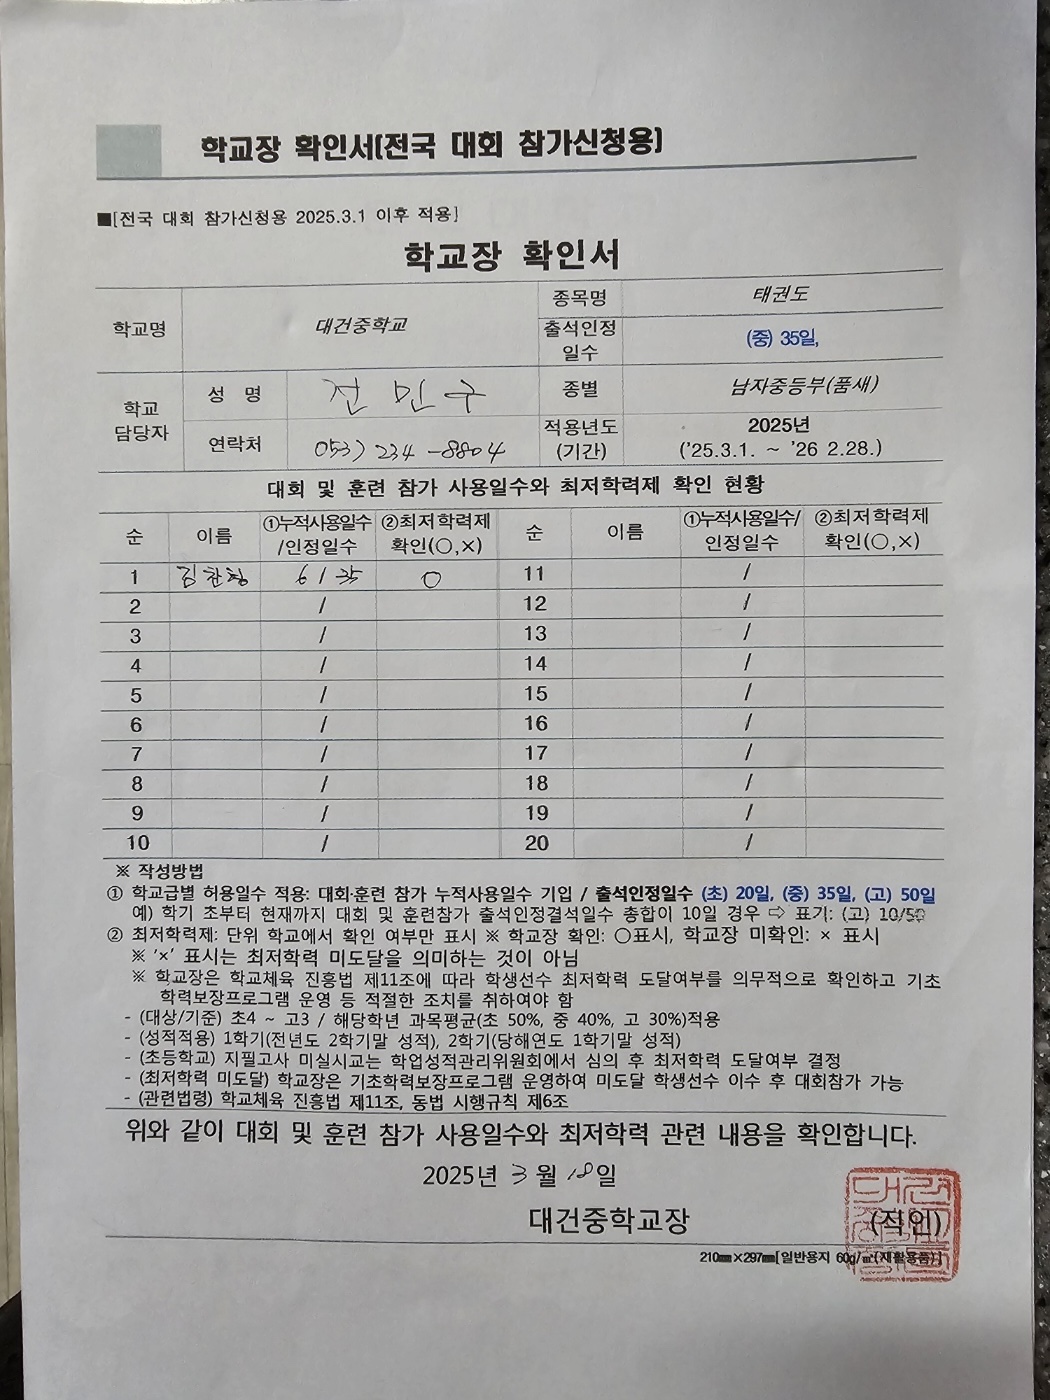 학교장 확인서(전국 대회 참가신청용)
■[전국 대회 참가신청용 2025.3.1 이후 적용]
학교장 확인서
학교명 대건중학교 종목명 태권도
출석인정 일수 (중) 35일,
학교 담당자 성 명 전민구 종별 남자중등부(품새)
연락처 053) 234-8804 적용년도 (기간) 2025년 ('25.3.1. ~ '26 2.28.)
대회 및 훈련 참가 사용일수와 최저학력제 확인 현황
순 이름 ①누적사용일수/인정일수 ②최저학력제 확인(○,×) 순 이름 ①누적사용일수/인정일수 ②최저학력제 확인(○,×)
1 6 / 35 ○ 11 /
2 / 12 /
3 / 13 /
4 / 14 /
5 / 15 /
6 / 16 /
7 / 17 /
8 / 18 /
9 / 19 /
10 / 20 /
※ 작성방법
① 학교급별 허용일수 적용: 대회·훈련 참가 누적사용일수 기입 / 출석인정일수 (초) 20일, (중) 35일, (고) 50일
예) 학기 초부터 현재까지 대회 및 훈련참가 출석인정결석일수 총합이 10일 경우 ⇨ 표기: (고) 10/50
② 최저학력제: 단위 학교에서 확인 여부만 표시 ※ 학교장 확인: ○표시, 학교장 미확인: × 표시
※ '×' 표시는 최저학력 미도달을 의미하는 것이 아님
※ 학교장은 학교체육 진흥법 제11조에 따라 학생선수 최저학력 도달여부를 의무적으로 확인하고 기초
학력보장프로그램 운영 등 적절한 조치를 취하여야 함
- (대상/기준) 초4 ~ 고3 / 해당학년 과목평균(초 50%, 중 40%, 고 30%)적용
- (성적적용) 1학기(전년도 2학기말 성적), 2학기(당해연도 1학기말 성적)
- (초등학교) 지필고사 미실시교는 학업성적관리위원회에서 심의 후 최저학력 도달여부 결정
- (최저학력 미도달) 학교장은 기초학력보장프로그램 운영하여 미도달 학생선수 이수 후 대회참가 가능
- (관련법령) 학교체육 진흥법 제11조, 동법 시행규칙 제6조
위와 같이 대회 및 훈련 참가 사용일수와 최저학력 관련 내용을 확인합니다.
2025년 3월 18일
대건중학교장 (직인)
210㎜×297㎜[일반용지 60g/㎡(재활용품)]